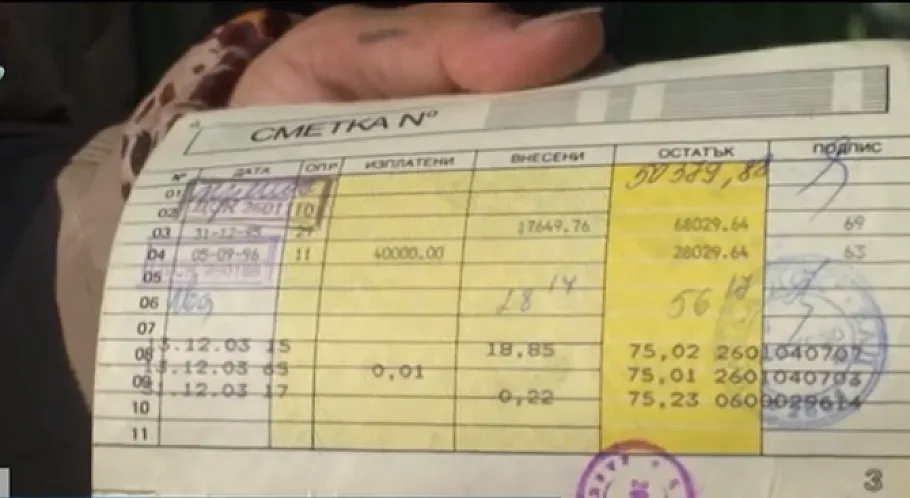 СМЕТКА №
№ ДАТА ОПР ИЗПЛАТЕНИ ВНЕСЕНИ ОСТАТЪК ПОДПИС
01 50389,88
02 2601 10
03 31-12-95 17649.76 68029.64 69
04 05-09-96 11 40000.00 28029.64 63
05
06 28 14 56 17
07
08 .12.03 15 18,85 75,02 2601040707
09 .12.03 65 0,01 75,01 2601040703
10 31.12.03 17 0,22 75,23 0600029614
11
3